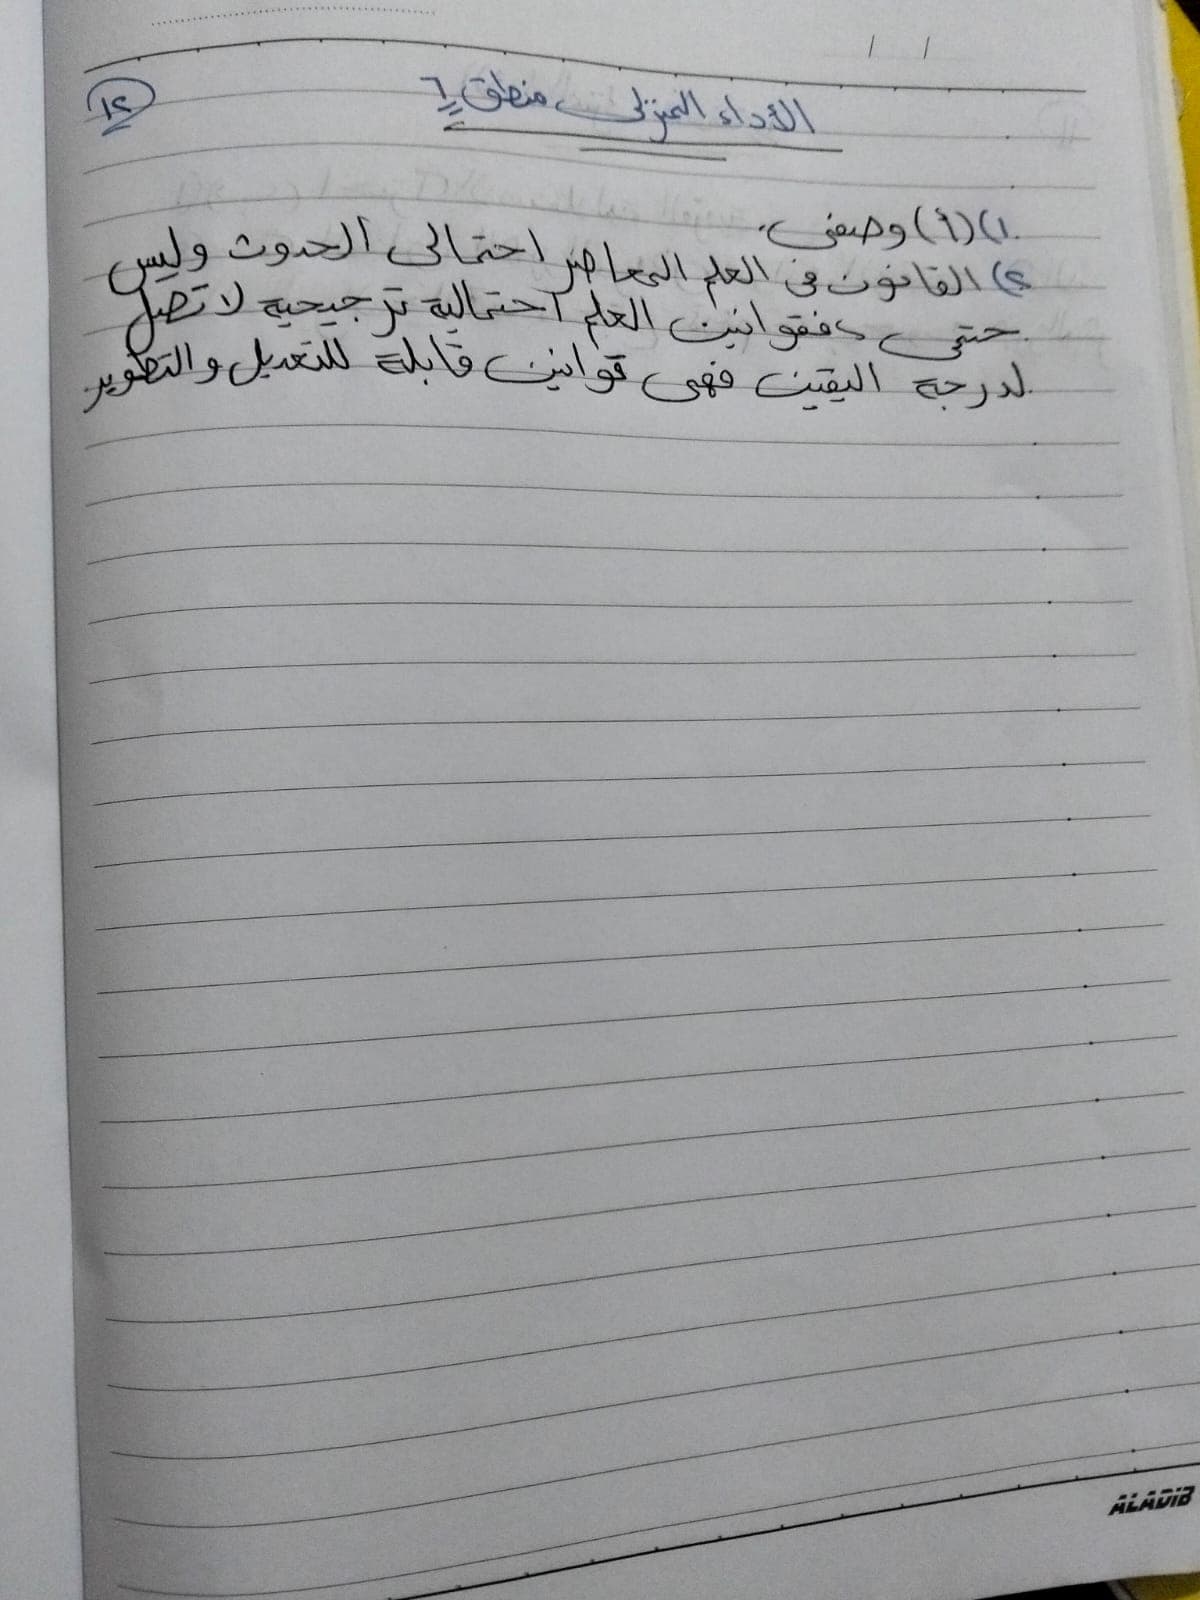 / /
الأداء المنزلى منطق ٦
١٢
١) (أ) وصفى.
٢) القانون فى العلم المعاصر احتمالى الحدوث وليس
حتمى ففقوانين العلم احتمالية ترجيحية لا تصل
لدرجة اليقين فهى قوانين قابلة للتعديل والتطوير
ALADIB